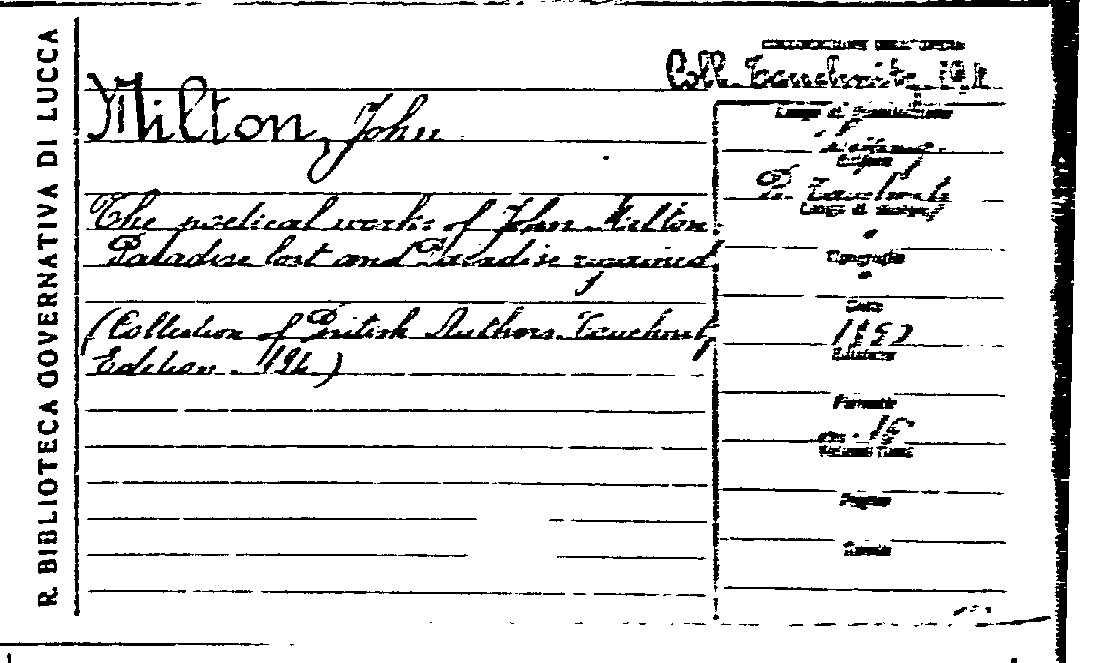 R. BIBLIOTECA GOVERNATIVA DI LUCCA
Coll. Tauchnitz 194
Milton, John
The poetical works of John Milton.
Paradise lost and Paradise regained
(Collection of British Authors. Tauchnitz
Edition. 194.)
Luogo di
Editore
B. Tauchnitz
Luogo di stampa
Tipografia
Data
1850
Edizione
Formato
16
Pagine
Tavole